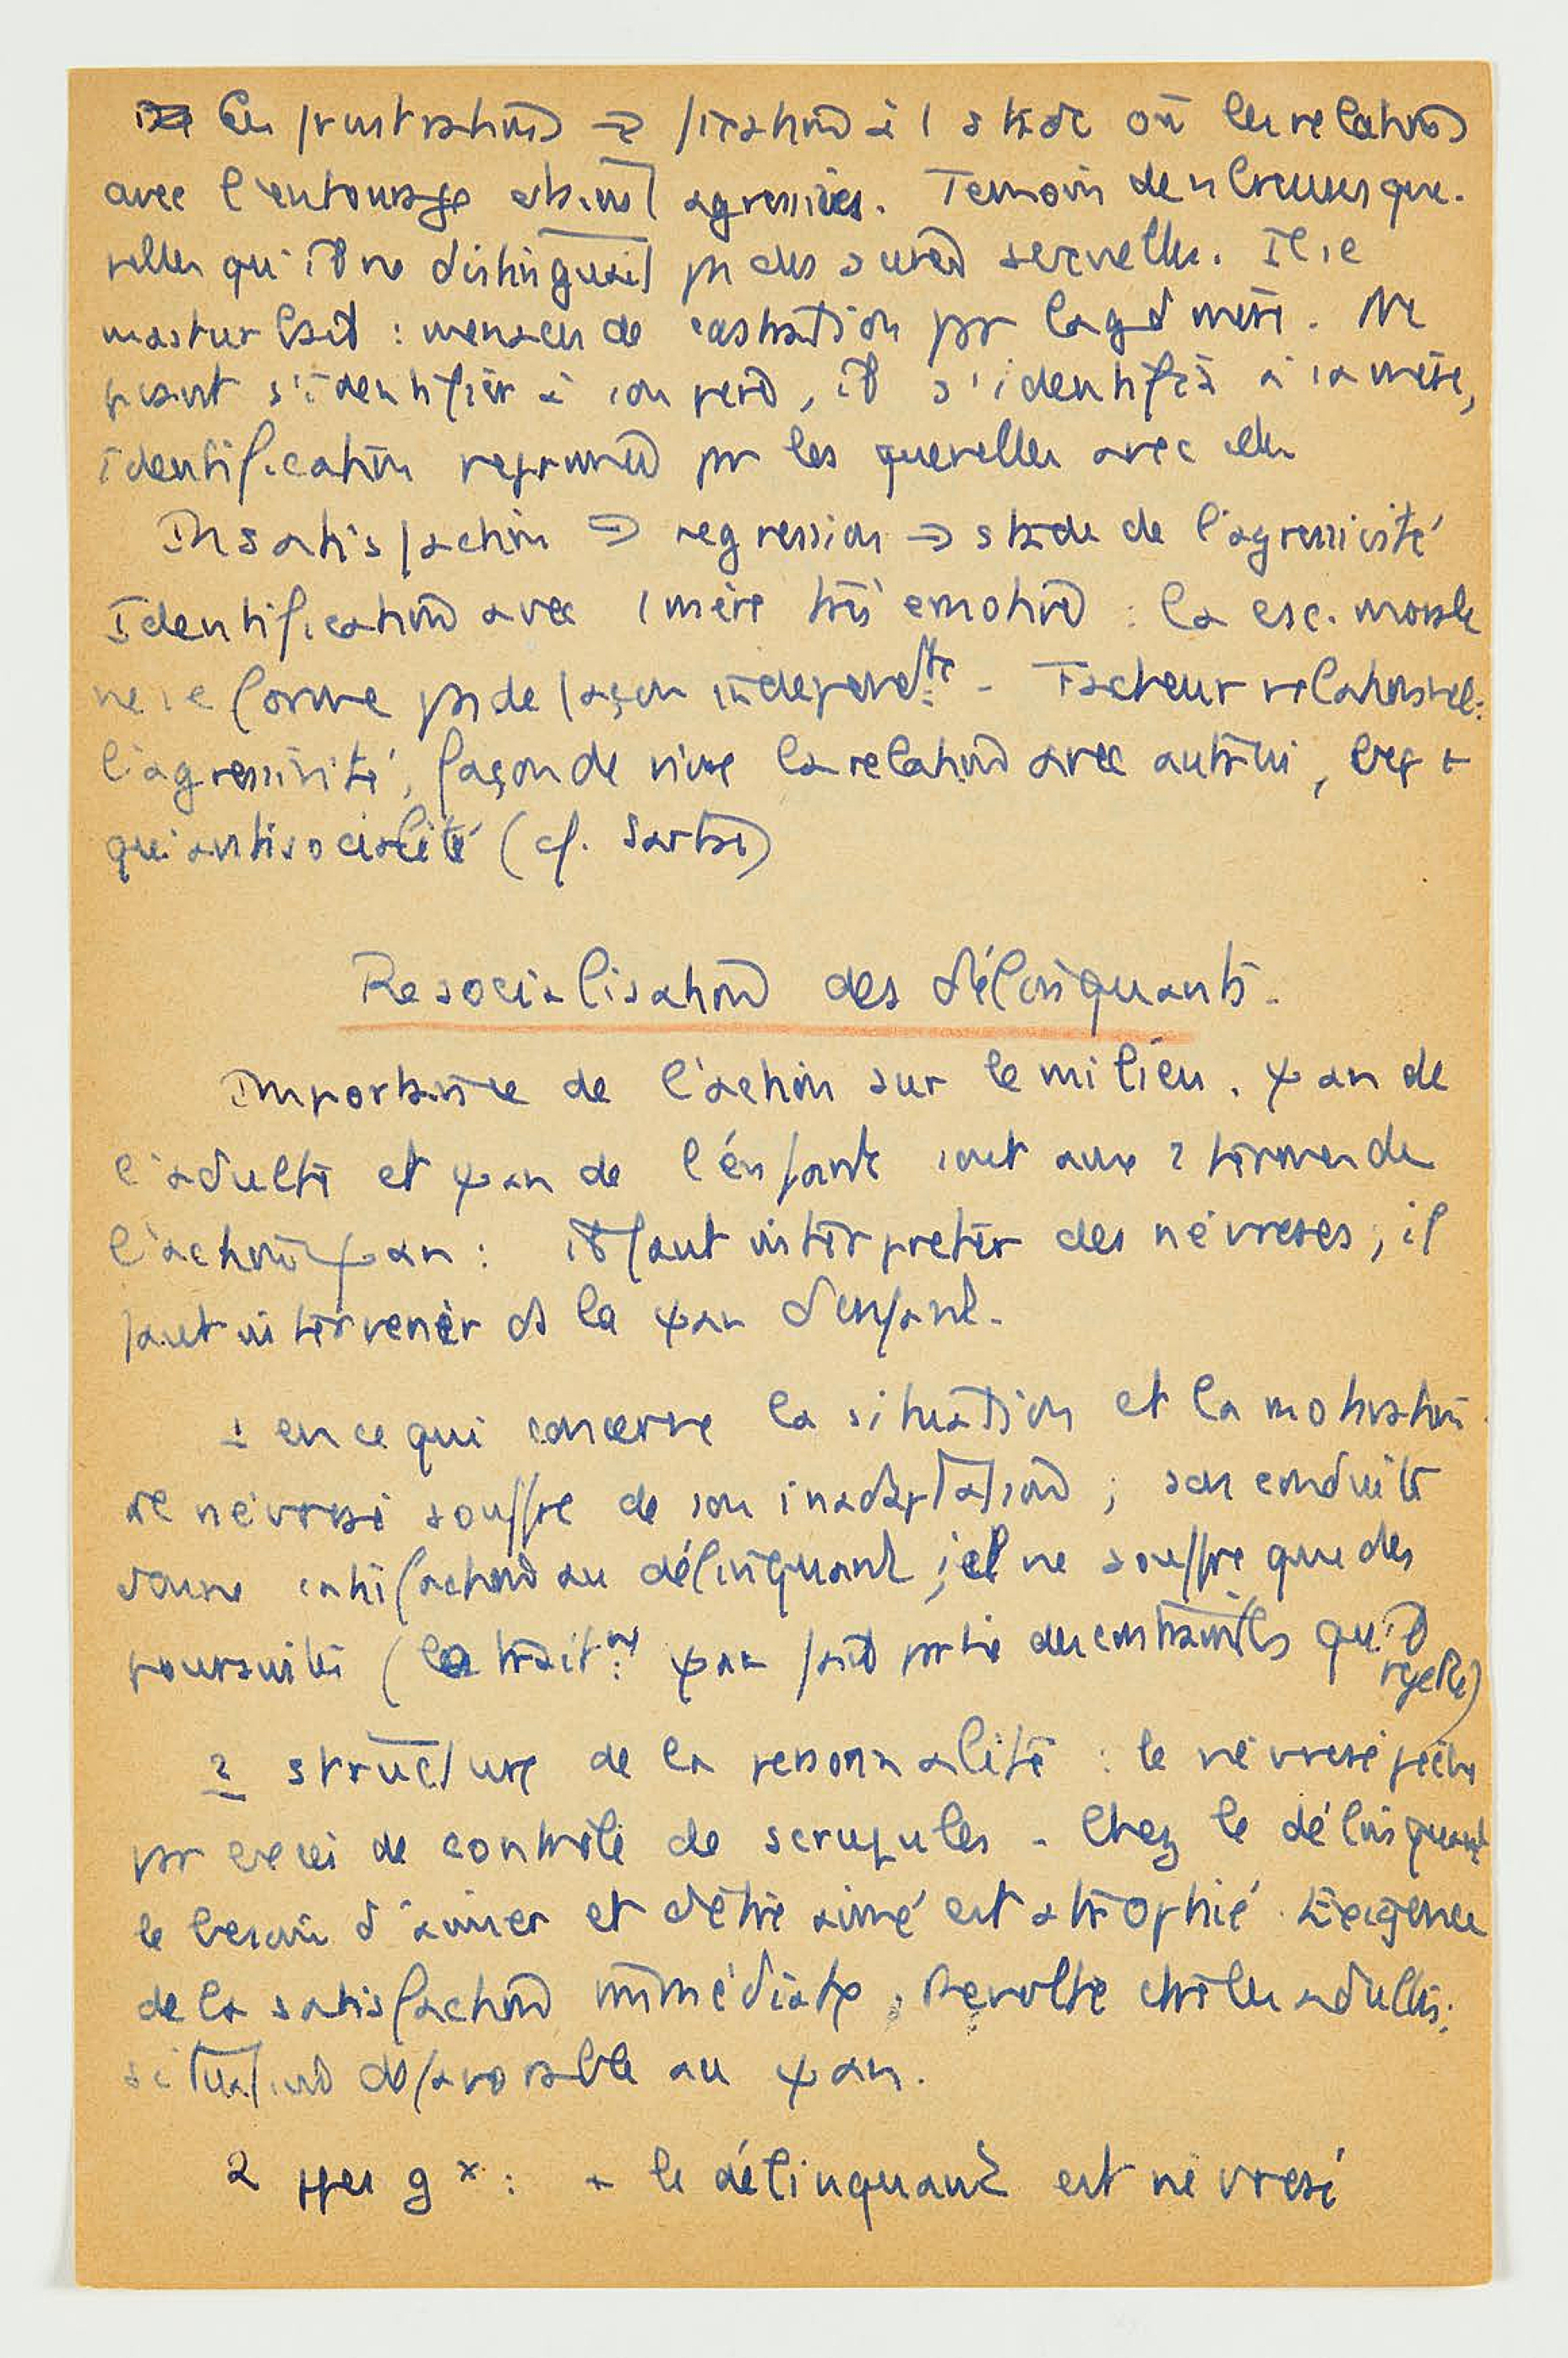 Les frustrations → fixation à 1 stade où les relations
avec l'entourage étaient agressives. Temoin de nbreuses que-
relles qu'il ne distinguait pas des scènes sexuelles. Il se
masturbait : menaces de castration par la gd mère. Ne
pvant s'identifier à son père, il s'identifie à sa mère,
identification reprimée par les querelles avec elle
Insatisfaction → regression → stade de l'agressivité
Identification avec 1 mère très émotive : la csc. morale
ne se forme pas de façon independte - Facteur relationnel:
l'agressivité, façon de vivre la relation avec autrui, est +
qu'antisocialité (cf. Sartre)
Resocialisation des délinquants.
Importance de l'action sur le milieu. ψan de
l'adulte et ψan de l'enfant sont aux 2 termes de
l'action ψan : il faut interpreter des névroses ; il
faut intervenir ds la ψan d'enfant.
1 en ce qui concerne la situation et la motivation
le névrosé souffre de son inadaptation ; sa conduite
donne satisfaction au délinquant ; il ne souffre que des
poursuites (le trait.nt ψan fait partie des contraintes qu'il
rejette)
2 structure de la personnalité : le névrosé pèche
par excès de contrôle de scrupules - Chez le délinquant
le besoin d'aimer et d'être aimé est atrophié. Exigence
de la satisfaction immédiate, Revolte ctre les adultes;
situation défavorable au ψan.
2 types gx : + le délinquant est névrosé